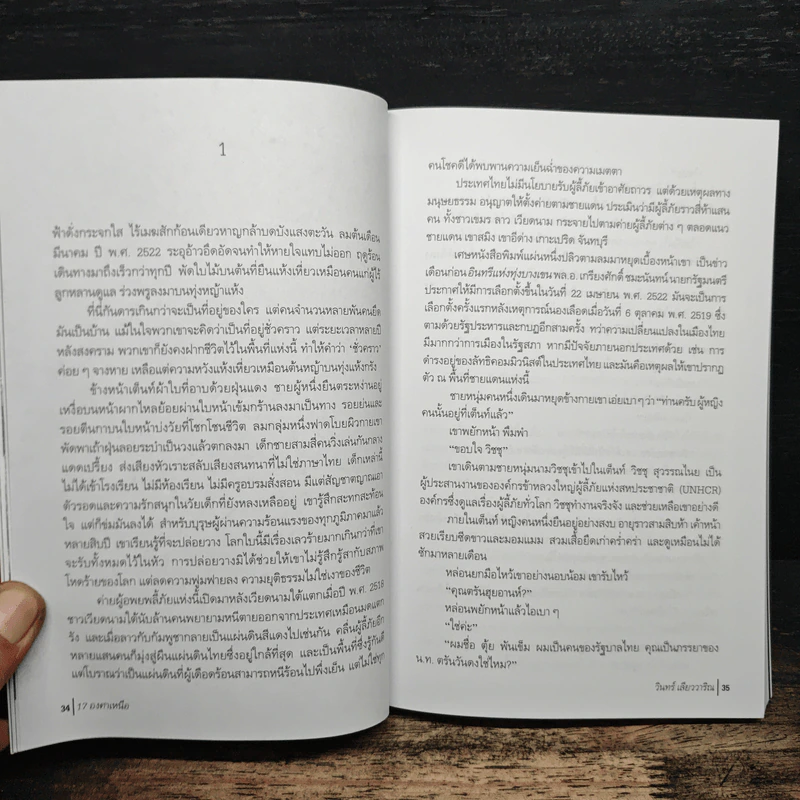 1
ฟ้าดั่งกระจกใส ไร้เมฆสักก้อนเดียวหาญกล้าบดบังแสงตะวัน ลมต้นเดือน
มีนาคม ปี พ.ศ. 2522 ระอุอ้าวอึดอัดจนทำให้หายใจแทบไม่ออก ฤดูร้อน
เดินทางมาถึงเร็วกว่าทุกปี พัดใบไม้บนต้นที่ยืนแห้งเหี่ยวเหมือนคนแก่ผู้ไร้
ลูกหลานดูแล ร่วงพรูลงมาบนทุ่งหญ้าแห้ง
ที่นี่กันดารเกินกว่าจะเป็นที่อยู่ของใคร แต่คนจำนวนหลายพันคนยึด
มันเป็นบ้าน แม้ในใจพวกเขาจะคิดว่าเป็นที่อยู่ชั่วคราว แต่ระยะเวลาหลายปี
หลังสงคราม พวกเขาก็ยังคงฝากชีวิตไว้ในพื้นที่แห่งนี้ ทำให้คำว่า 'ชั่วคราว'
ค่อย ๆ จางหาย เหลือแต่ความหวังแห้งเหี่ยวเหมือนต้นหญ้าบนทุ่งแห้งกรัง
ข้างหน้าเต็นท์ผ้าใบที่อาบด้วยฝุ่นแดง ชายผู้หนึ่งยืนตระหง่านอยู่
เหงื่อบนหน้าผากไหลย้อยผ่านใบหน้าเข้มกร้านลงมาเป็นทาง รอยย่นและ
รอยตีนกาบนใบหน้าบ่งวัยที่โชกโชนชีวิต ลมกลุ่มหนึ่งฟาดโบยผิวกายเขา
พัดพาเถ้าฝุ่นลอยระบำเป็นวงแล้วตกลงมา เด็กชายสามสี่คนวิ่งเล่นกันกลาง
แดดเปรี้ยง ส่งเสียงหัวเราะสลับเสียงสนทนาที่ไม่ใช่ภาษาไทย เด็กเหล่านี้
ไม่ได้เข้าโรงเรียน ไม่มีห้องเรียน ไม่มีครูอบรมสั่งสอน มีแต่สัญชาตญาณเอา
ตัวรอดและความรักสนุกในวัยเด็กที่ยังหลงเหลืออยู่ เขารู้สึกสะทกสะท้อน
ใจ แต่ก็ข่มมันลงได้ สำหรับบุรุษผู้ผ่านความร้อนแรงของทุกภูมิภาคมาแล้ว
หลายสิบปี เขาเรียนรู้ที่จะปล่อยวาง โลกใบนี้มีเรื่องเลวร้ายมากเกินกว่าที่เขา
จะรับทั้งหมดไว้ในหัว การปล่อยวางมิได้ช่วยให้เขาไม่รู้สึกรู้สากับสภาพ
โหดร้ายของโลก แต่ลดความฟูมฟายลง ความยุติธรรมไม่ใช่เงาของชีวิต
ค่ายผู้อพยพลี้ภัยแห่งนี้เปิดมาหลังเวียดนามใต้แตกเมื่อปี พ.ศ. 2518
ชาวเวียดนามใต้นับล้านคนพยายามหนีตายออกจากประเทศเหมือนมดแตก
รัง และเมื่อลาวกับกัมพูชากลายเป็นแผ่นดินสีแดงไปเช่นกัน คลื่นผู้ลี้ภัยอีก
หลายแสนคนก็มุ่งสู่ผืนแผ่นดินไทยซึ่งอยู่ใกล้ที่สุด และเป็นพื้นที่ซึ่งรู้กันดี
แต่โบราณว่าเป็นแผ่นดินที่ผู้เดือดร้อนสามารถหนีร้อนไปพึ่งเย็น แต่ไม่ใช่ทุก
34 | 17 องศาเหนือ
คนโชคดีได้พบพานความเย็นฉ่ำของความเมตตา
ประเทศไทยไม่มีนโยบายรับผู้ลี้ภัยเข้าอาศัยถาวร แต่ด้วยเหตุผลทาง
มนุษยธรรม อนุญาตให้ตั้งค่ายตามชายแดน ประเมินว่ามีผู้ลี้ภัยราวสี่ห้าแสน
คน ทั้งชาวเขมร ลาว เวียดนาม กระจายไปตามค่ายผู้ลี้ภัยต่าง ๆ ตลอดแนว
ชายแดน เขาสมิง เขาอีด่าง เกาะปริด จันทบุรี
เศษหนังสือพิมพ์แผ่นหนึ่งปลิวตามลมมาหยุดเบื้องหน้าเขา เป็นข่าว
เดือนก่อน อินทรีแห่งทุ่งบางเขน พล.อ. เกรียงศักดิ์ ชมะนันทน์ นายกรัฐมนตรี
ประกาศให้มีการเลือกตั้งขึ้นในวันที่ 22 เมษายน พ.ศ. 2522 มันจะเป็นการ
เลือกตั้งครั้งแรกหลังเหตุการณ์นองเลือดเมื่อวันที่ 6 ตุลาคม พ.ศ. 2519 ซึ่ง
ตามด้วยรัฐประหารและกบฏอีกสามครั้ง ทว่าความเปลี่ยนแปลงในเมืองไทย
มีมากกว่าการเมืองในรัฐสภา หากมีปัจจัยภายนอกประเทศด้วย เช่น การ
ดำรงอยู่ของลัทธิคอมมิวนิสต์ในประเทศไทย และมันคือเหตุผลให้เขาปรากฏ
ตัว ณ พื้นที่ชายแดนแห่งนี้
ชายหนุ่มคนหนึ่งเดินมาหยุดข้างกายเขา เอ่ยเบา ๆ ว่า "ท่านครับ ผู้หญิง
คนนั้นอยู่ที่เต็นท์แล้ว"
เขาพยักหน้า พึมพำ
"ขอบใจ วิชชุ"
เขาเดินตามชายหนุ่มนามวิชชุเข้าไปในเต็นท์ วิชชุ สุวรรณไนย เป็น
ผู้ประสานงานขององค์กรข้าหลวงใหญ่ผู้ลี้ภัยแห่งสหประชาชาติ (UNHCR)
องค์กรซึ่งดูแลเรื่องผู้ลี้ภัยทั่วโลก วิชชุทำงานจริงจัง และช่วยเหลือเขาอย่างดี
ภายในเต็นท์ หญิงคนหนึ่งยืนอยู่อย่างสงบ อายุราวสามสิบห้า เค้าหน้า
สวยเรียบซีดขาวและมอมแมม สวมเสื้อยืดเก่าคร่ำคร่า และดูเหมือนไม่ได้
ซักมาหลายเดือน
หล่อนยกมือไหว้เขาอย่างนอบน้อม เขารับไหว้
"คุณตรันฮุยอานห์?"
หล่อนพยักหน้าแล้วไอเบา ๆ
"ใช่ค่ะ"
"ผมชื่อ ตุ้ย พันเข็ม ผมเป็นคนของรัฐบาลไทย คุณเป็นภรรยาของ
น.ท. ตรันวันดงใช่ไหม?"
วินทร์ เลียววาริณ | 35